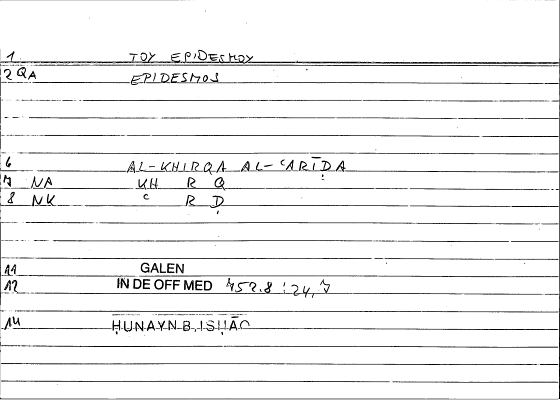 1 TOY EPIDESMOY
2 QA EPIDESMOS
6 AL-KHIRQA AL-ʿARĪḌA
7 NA KH R Q
8 NK ʿ R Ḍ
11 GALEN
12 IN DE OFF MED 752.8 : 24, 7
14 ḤUNAYN B. ISḤĀQ